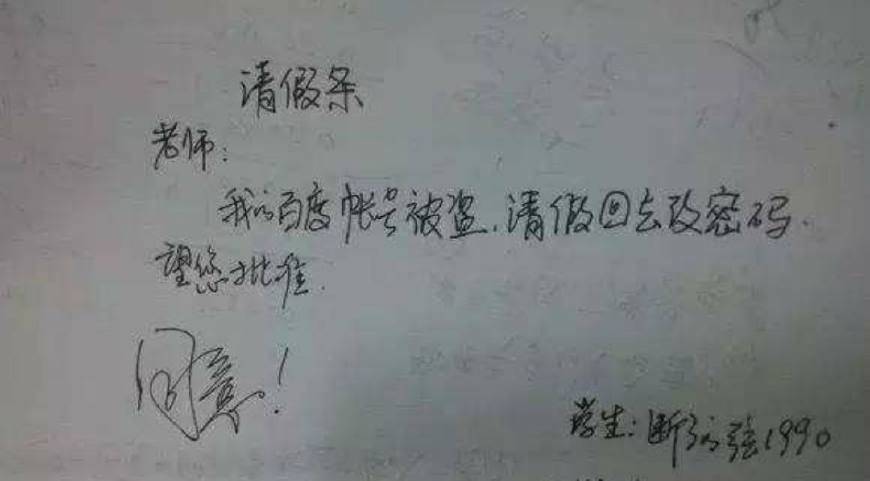 请假条
老师:
我的百度帐号被盗,请假回去改密码.
望您批准.
同意!
学生:断了的弦1990